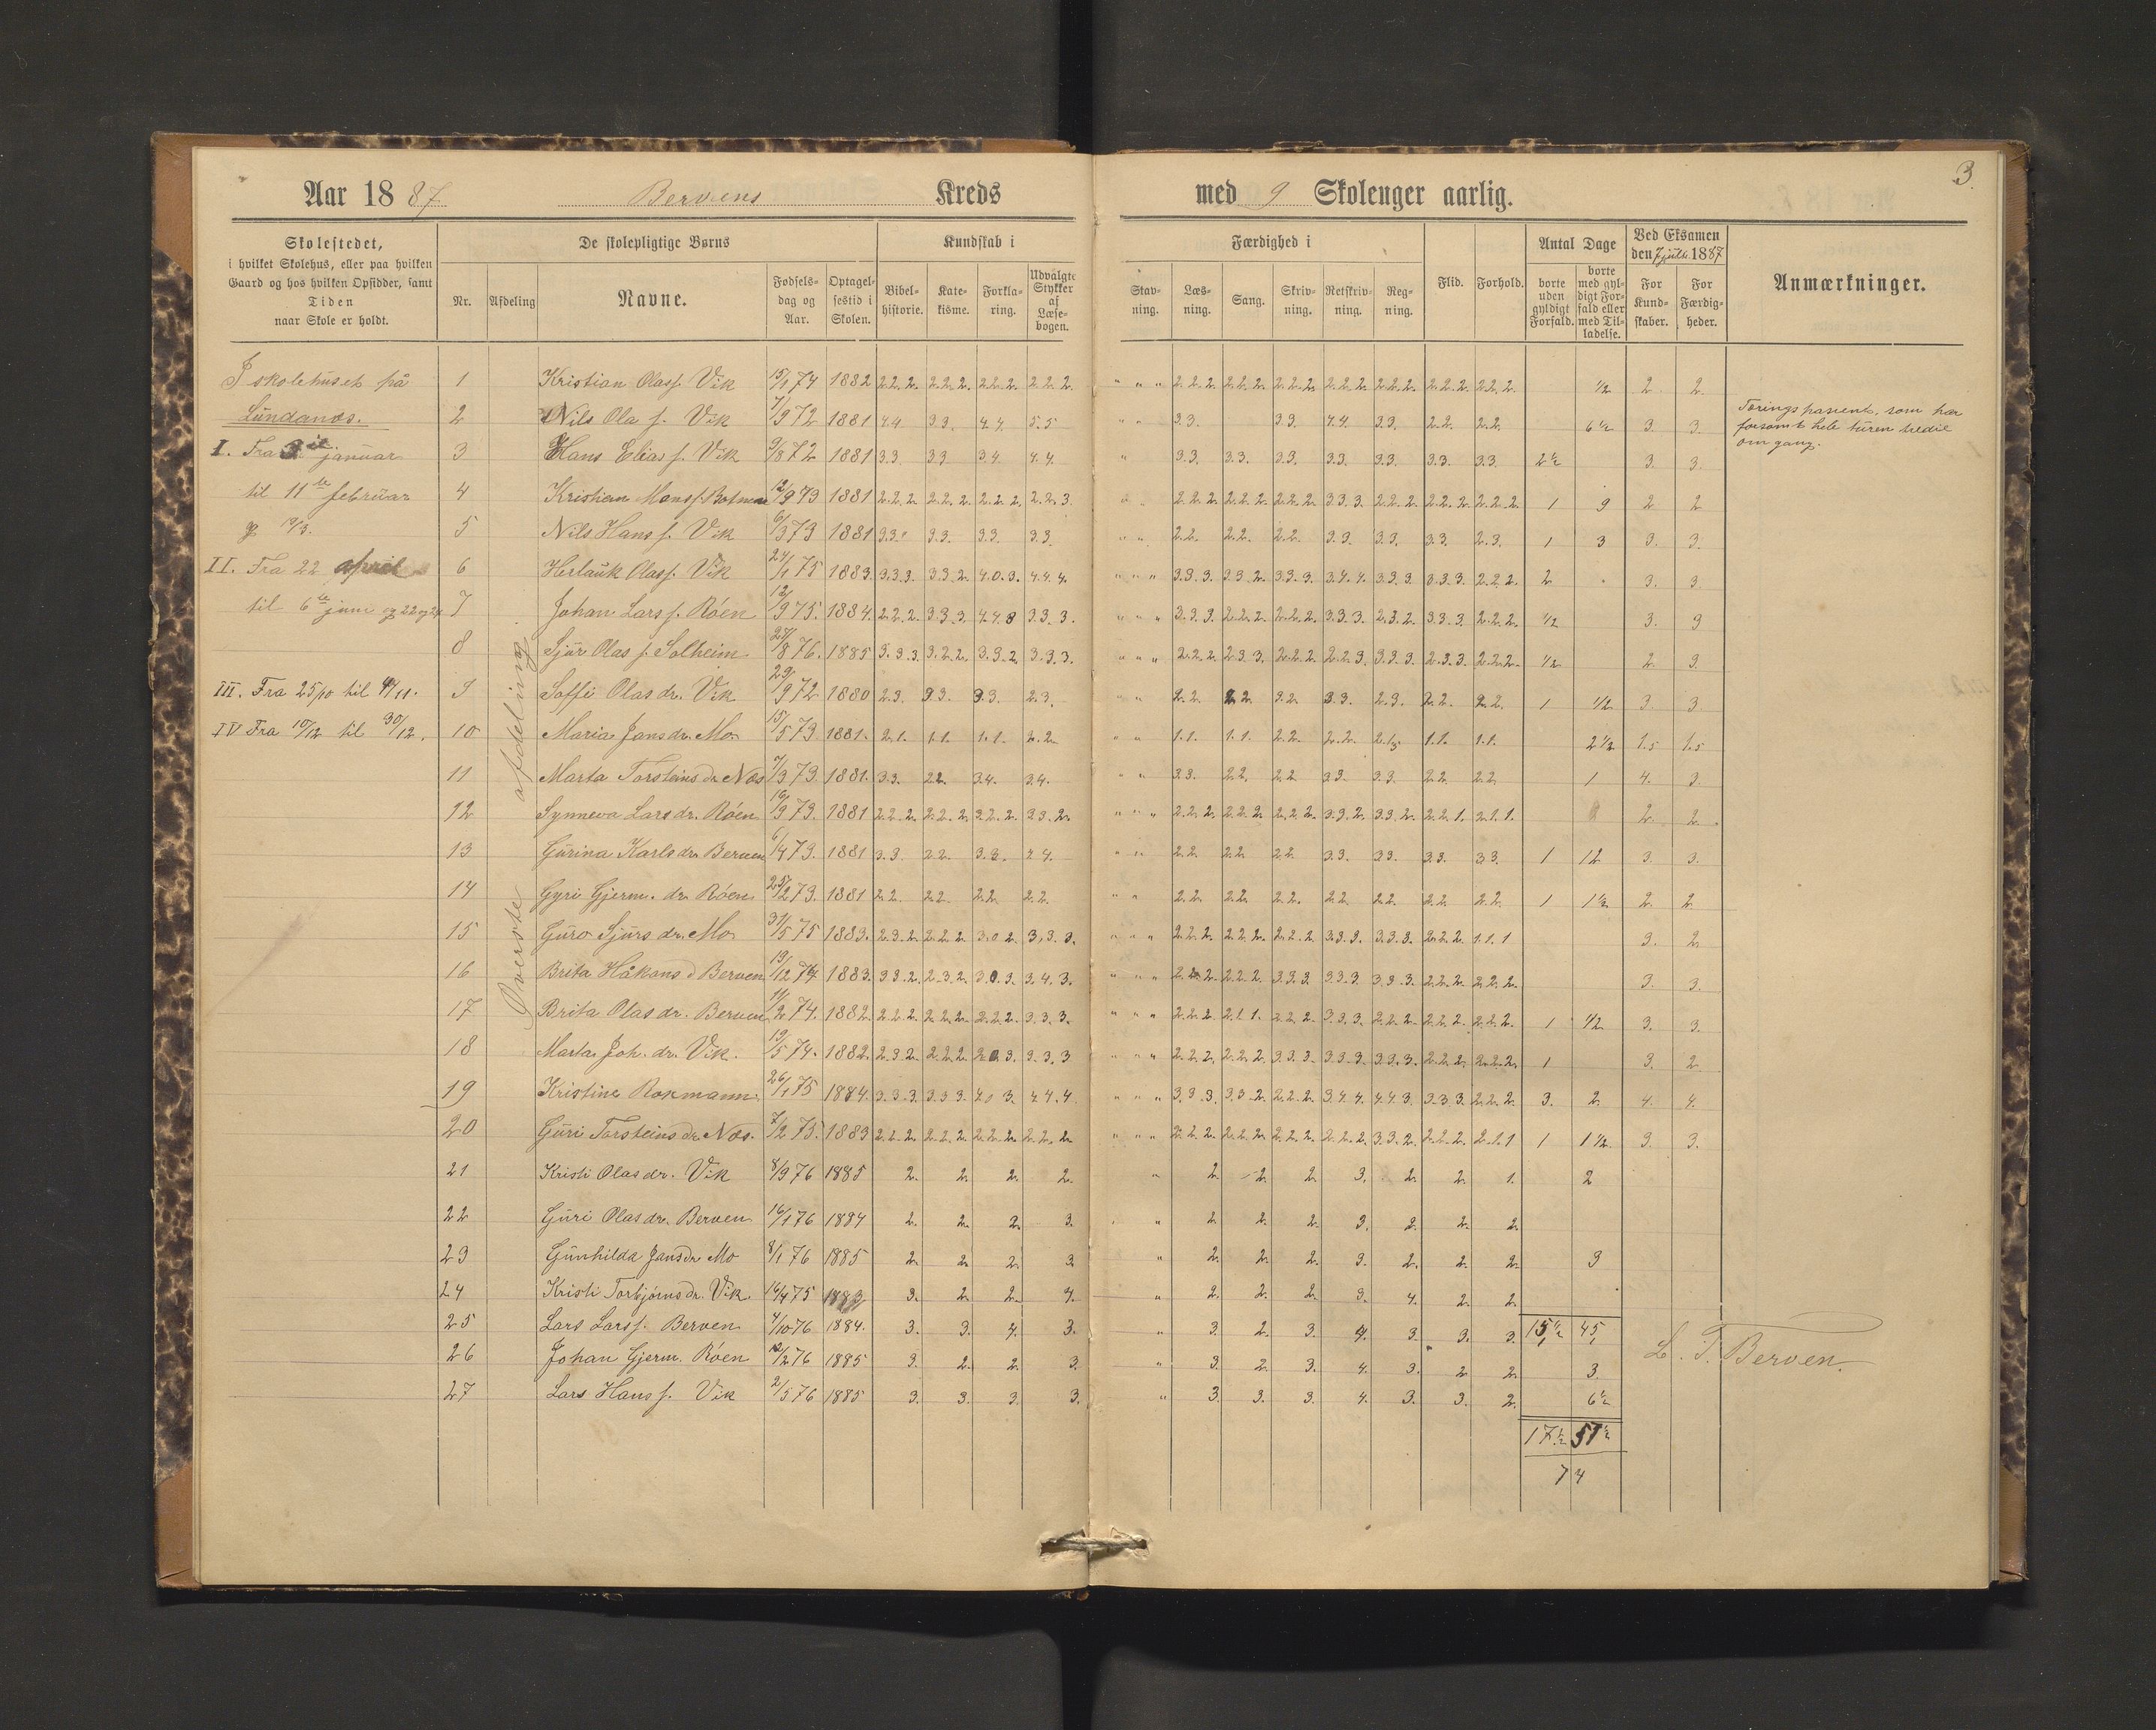 3.
Aar 1887 Bervens Kreds med 9 Skoleuger aarlig.
Skolestedet,
i hvilket Skolehus, eller paa hvilken
Gaard og hos hvilken Opsidder, samt
Tiden
naar Skole er holdt.
De skolepligtige Børns
Nr. Afdeling Navne. Fødsels-dag og Aar. Optagel-sestid i Skolen.
Kundskab i
Bibel-historie. Kate-kisme. Forkla-ring. Udvalgte Stykker af Læse-bogen.
Færdighed i
Stav-ning. Læs-ning. Sang. Skriv-ning. Retskriv-ning. Reg-ning. Flid. Forhold.
Antal Dage
borte uden gyldigt Forfald. borte med gyl-digt For-fald eller med Til-ladelse.
Ved Eksamen
den 7 juli 1887
For Kund-skaber. For Færdig-heder.
Anmærkninger.
I skolehuset på
Lundanes.
I. Fra januar
til 11te februar
II. Fra 22 april
til 6te juni og 22 og 24
III. Fra 25/10 til /11.
IV Fra 10/12 til 30/12.
Øverste afdeling
1 Kristian Olas f. Vik 15/1 74 1882 2.2.2. 2.2.2. 2.2.2. 2.2.2. " " " 2.2.2 2.2.2. 2.2.2 2.2.2 2.2.2. 2.2.2. 2.2.2. 1/2 2. 2.
2 Nils Ola f. Vik 7/9 72 1881 4.4 3.3. 4.4. 5.5 " " 3.3. 3.3. 4.4. 3.3. 2.2. 2.2. 6 1/2 3. 3.
Tæringspasient, som har
forsømt hele turen tredie
omgang.
3 Hans Elias f. Vik 9/8 72 1881 3.3. 3.3 3.4. 4.4. " 3.3. 3.3. 3.3. 3.3. 3.3. 3.3. 3.3. 2 1/2 3. 3.
4 Kristian Mons f. 12/9 73 1881 2.2.2. 2.2.2. 2.2.2. 2.2.3. 2.2.2. 2.2.2. 2.2.2. 3.3.3. 2.2.2. 2.2.2. 2.2.2. 1 9 2 2
5 Nils Hans f. Vik 6/3 73 1881 3.3. 3.3. 3.3. 3.3. " " 2.2. 2.2. 2.2 3.3. 3.3. 3.3. 2.3. 1 3 3. 3.
6 Herlauk Olas f. Vik 24/1 75 1883. 3.3.3. 3.3.2. 4.0.3. 4.4.4. " " " 3.3.3. 3.3.2. 3.3.3. 3.4.4. 3.3.3. 3.3.3. 2.2.2. 2 3. 3.
7 Johan Lars f. Róen 12/9 75. 1884. 2.2.2. 3.3.3. 4.4.3 3.3.3. " " " 3.3.3. 2.2.2. 2.2.2. 3.3.3. 2.3.2. 3.3.3. 2.2.2. 1/2 3. 3
8 Sjur Olas f. Solheim 27/8 76. 1885 3.3.3. 3.2.2. 3.3.2. 3.3.3. " " " 2.2.2. 2.3.3. 2.2.2. 2.2.3. 3.3.3. 2.3.3. 2.2.2. 1/2 2. 3.
9 Soffi Olas dr. Vik 29/9 72 1880 2.3. 3.3. 3.3. 2.3. " " 2.2. 2.2 3.2. 3.3. 2.3. 2.2. 2.2. 1 1/2 3. 3.
10 Maria Jans dr. Mo. 15/5 73 1881. 2.1. 1.1. 1.1. 2.2. " " 1.1. 1.1. 2.2. 2.2. 2.1,5 1.1. 1.1. 2 1/2 1.5 1.5
11 Marta Torsteins dr Næs 7/3 73. 1881. 3.3. 2.2. 3.4. 3.4. " " 3.3. 2.2. 2.2 3.3. 3.3. 2.2 2.2 1 4. 3.
12 Synneva Lars dr. Róen 16/3 73. 1881 2.2.2. 2.2.2. 2.2.2. 3.3.2. " " " 2.2.2. 2.2.2 2.2.2. 3.3.2. 3.3.2. 2.2.1. 2.1.1. 2. 2.
13 Gurina Karls dr Berven 6/4 73. 1881 3.3. 2.2. 3.3. 2.4. " " 2.2 2.2 2.2 3.3. 3.3. 3.3. 3.3. 1 12 3. 3.
14 Gyri Gjerm. dr. Róen 25/2 73. 1881 2.2. 2.2. 2.2. 2.2. " " 2.2. 2.2 2.2. 2.2 2.2. 2.2 2.2. 1 1 1/2 2. 2.
15 Guro Sjurs dr. Mo 31/5 75 1883. 2.3.2. 2.2.2 3.0.2. 3.3.3. " " " 2.2.2 2.2.2. 2.2.2 3.3.3. 3.3.3. 2.2.2. 1.1.1 3. 2.
16 Brita Håkons d Berven 13/12 74. 1883. 3.3.2. 2.3.2. 3.0.3. 3.4.3. " " " 2.2.2. 2.2.2. 3.3.3 3.3.3 3.3.3. 2.2.2. 2.2.2. 3. 3.
17 Brita Olas dr. Berven 11/2 74. 1882. 2.2.2. 2.2.2. 2.2.2. 3.3.3. " " " 2.2.2. 2.1.1. 2.2.2. 3.3.3. 2.2.2. 2.2.2. 2.2.2. 1 1/2 3. 3.
18 Marta Joh. dr. Vik. 13/5 74. 1882. 2.3.2. 2.2.2. 2.0.3. 3.3.3 " " " 2.2.2. 2.2.2 3.3.3. 3.3.3. 3.3.3. 2.2.2. 2.2.2. 1 3. 2.
19 Kristine Rosmann. 26/1 75 1884. 3.3.3. 3.3.3. 4.0.3. 4.4.4. " " " 3.3.3. 3.3.2. 2.2.2. 3.4.4. 4.4.3. 3.3.3 2.2.2. 3. 2. 4. 4.
20 Guri Torsteins dr. Næs. 7/2 75. 1883 2.2.2. 2.2.2. 2.2.2. 2.2.2. " " " 2.2.2. 2.2.2. 2.2.2. 2.2.2 3.3.2. 2.2.2. 2.1.1 1 1 1/2 3. 3.
21 Kristi Olas dr. Vik 8/9 76 1885 2. 2. 2. 2. " 2. 2. 2. 3. 2. 2. 1. 2
22 Guri Olas dr. Berven 16/1 76 1884 2. 2. 2. 3. " 2. 2. 2. 3. 2. 2. 2.
23 Gunhilda Jans dr Mo 8/1 76 1885 2. 2. 2. 3. " 2. 2. 2. 3. 2. 2. 2. 3
24 Kristi Torbjörns dr. Vik 14/4 75 1883 3. 2. 2. 4. " 2. 2. 2. 3. 4. 2. 2.
25 Lars Lars f. Berven 4/10 76 1884. 3. 3. 4. 3. " 3. 2. 3. 4. 3. 3. 3. 15 1/2 45
26 Johan Gjerm. Róen 12/2 76 1885 3. 2. 2. 3. " 3. 2. 3. 4. 3. 2. 2. 3.
27 Lars Hans f. Vik 2/5 76 1885 3. 3. 3. 3. " 3. 3. 3. 4. 3. 3. 2. 6 1/2
L. T. Berven.
17 1/2 57 1/2
74